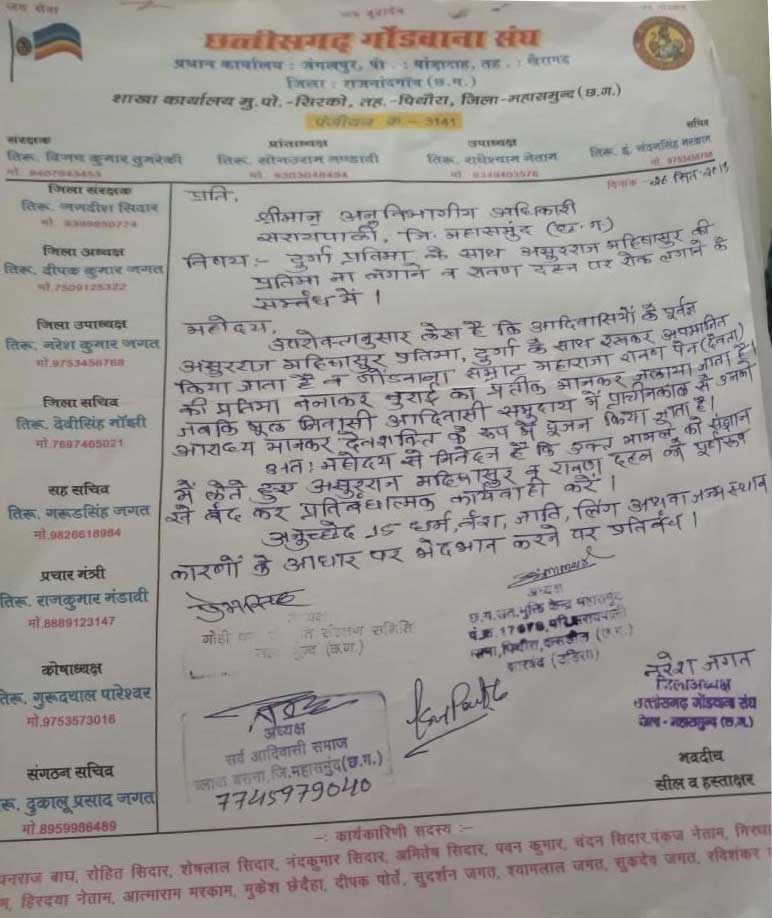 जय सेवा
छत्तीसगढ़ गोंडवाना संघ
प्रधान कार्यालय : जंगलपुर, पो. : पांडादाह, तह. : खैरागढ़
जिला : राजनांदगांव (छ.ग.)
शाखा कार्यालय मु.पो.-सिरको, तह.-पिथौरा, जिला-महासमुन्द (छ.ग.)
पंजीयन क्र.- 3141
संरक्षक
तिरू. विजय कुमार तुमरेकी
मो. 9407943453
प्रांताध्यक्ष
तिरू. सोनउराम मण्डावी
मो. 9303048494
उपाध्यक्ष
तिरू. राधेश्याम नेताम
मो. 9349403576
सचिव
तिरू. इं. चंदनसिंह मरकाम
मो. 9753458768
दिनांक -26 सित-2013
जिला संरक्षक
तिरू. जगदीश सिदार
जिला अध्यक्ष
तिरू. दीपक कुमार जगत
मो.7509125322
जिला उपाध्यक्ष
तिरू. नरेश कुमार जगत
मो.9753458768
जिला सचिव
तिरू. देवीसिंह माँझी
मो.7697465021
सह सचिव
तिरू. गरूडसिंह जगत
मो.9826618984
प्रचार मंत्री
तिरू. राजकुमार मंडावी
मो.8889123147
कोषाध्यक्ष
तिरू. गुरूदयाल पारेश्वर
मो.9753573016
संगठन सचिव
रू. दुकालू प्रसाद जगत
मो.8959986489
प्रति,
श्रीमान् अनुविभागीय अधिकारी
सरायपाली, जि. महासमुंद (छ.ग.)
विषय:- दुर्गा प्रतिमा के साथ असुरराज महिषासुर की
प्रतिमा ना लगाने व रावण दहन पर रोक लगाने के
सम्बंध में।
महोदय,
उपरोक्तानुसार लेख है कि आदिवासियों के पूर्वज
असुरराज महिषासुर प्रतिमा, दुर्गा के साथ रखकर अपमानित
किया जाता है व गोंडवाना सम्राट महाराजा रावण पेन (देवता)
की प्रतिमा बनाकर बुराई का प्रतीक मानकर जलाया जाता है।
जबकि मूल निवासी आदिवासी समुदाय में प्राचीनकाल से उनको
आराध्य मानकर देवशक्ति के रूप में पूजन किया जाता है।
अतः महोदय से निवेदन है कि उक्त मामले को संज्ञान
में लेते हुए असुरराज महिषासुर व रावण दहन को पूर्णरूप
से बंद कर प्रतिबंधात्मक कार्यवाही करें।
अनुच्छेद 15 धर्म, वंश, जाति, लिंग अथवा जन्म स्थान
कारणों के आधार पर भेदभाव करने पर प्रतिबंध।
अध्यक्ष
गोंडी संरक्षण समिति
(छ.ग.)
नरेश जगत
जिलाअध्यक्ष
छत्तीसगढ़ गोंडवाना संघ
जिला - महासमुन्द (छ.ग.)
अध्यक्ष
सर्व आदिवासी समाज
ब्लाक बसना, जि.महासमुंद(छ.ग.)
7745979040
भवदीय
सील व हस्ताक्षर
-: कार्यकारिणी सदस्य :-
रोहित सिदार, शेषलाल सिदार, नंदकुमार सिदार, अमितेष सिदार, पवन कुमार, चंदन सिदार, पंकज नेताम,
हिरदया नेताम, आत्माराम मरकाम, मुकेश छेदैहा, दीपक पोर्ते, सुदर्शन जगत, श्यामलाल जगत, सुकदेव जगत, रविशंकर